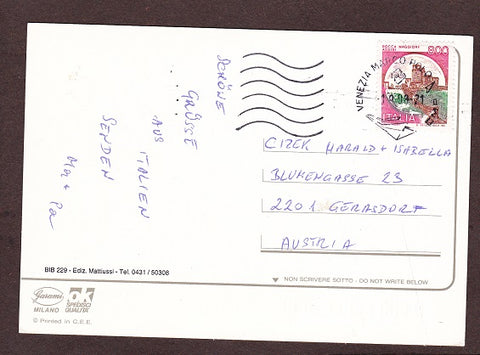 SCHÖNE
GRÜSSE
AUS ITALIEN
SENDEN
Ma + Pa
ROCCA MAGGIORE
800
ITALIA
VENEZIA MARCO POLO
CIZEK HARALD + ISABELLA
BLUMENGASSE 23
2201 GERASDORF
AUSTRIA
BIB 229 - Ediz. Mattiussi - Tel. 0431 / 50308
NON SCRIVERE SOTTO - DO NOT WRITE BELOW
Garami
MILANO
OK
SPEDISCI
QUALITÀ
© Printed in C.E.E.